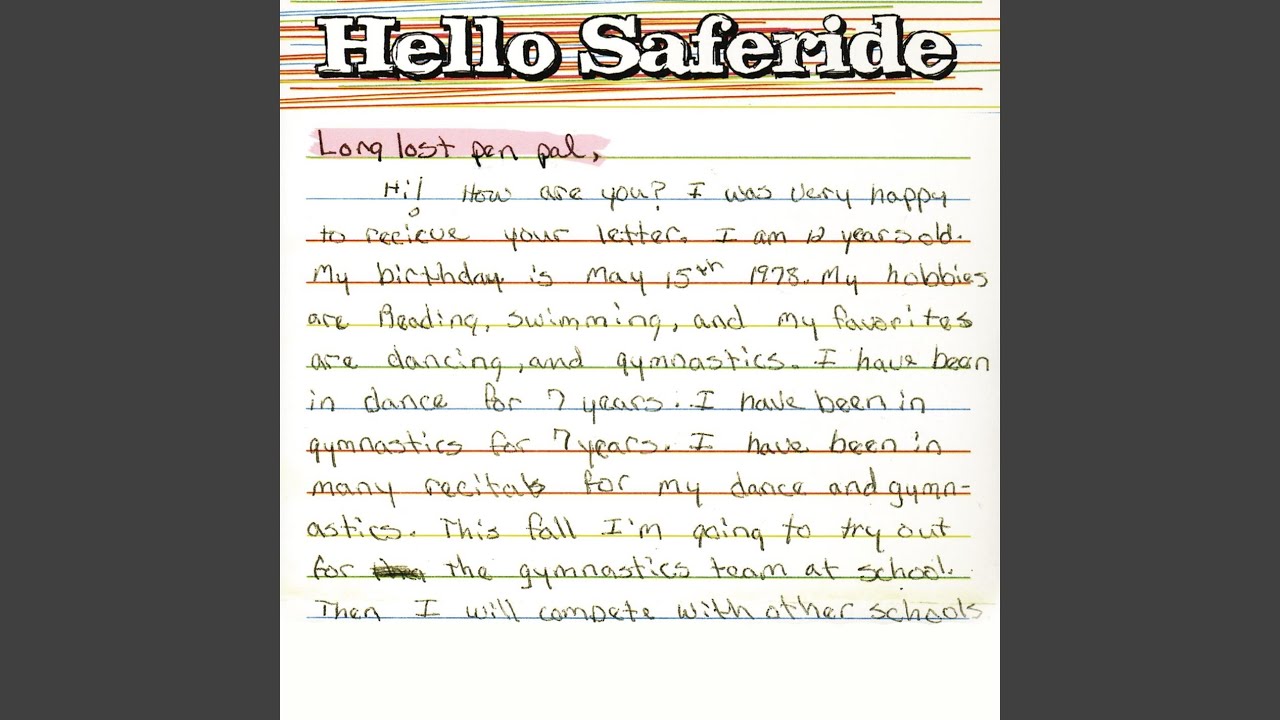 Hello Saferide
Long lost pen pal,
Hi! How are you? I was very happy
to recieve your letter. I am 12 years old.
My birthday is May 15th 1978. My hobbies
are Reading, swimming, and my favorites
are dancing, and gymnastics. I have been
in dance for 7 years. I have been in
gymnastics for 7 years. I have been in
many recitals for my dance and gymn-
astics. This fall I'm going to try out
for the gymnastics team at school.
Then I will compete with other schools